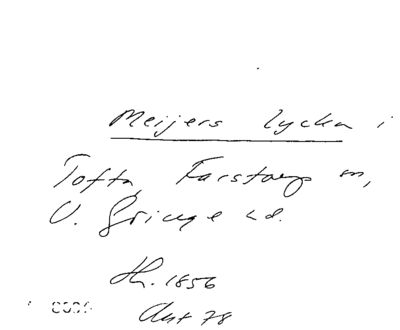 Meijers lycka i
Tofta, Farstorp sn,
V. Göinge hd.
th. 1856
Ant 78